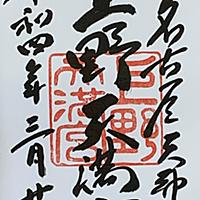 名古屋天神
上野天満
令和四年三月廿
上野
天満宮